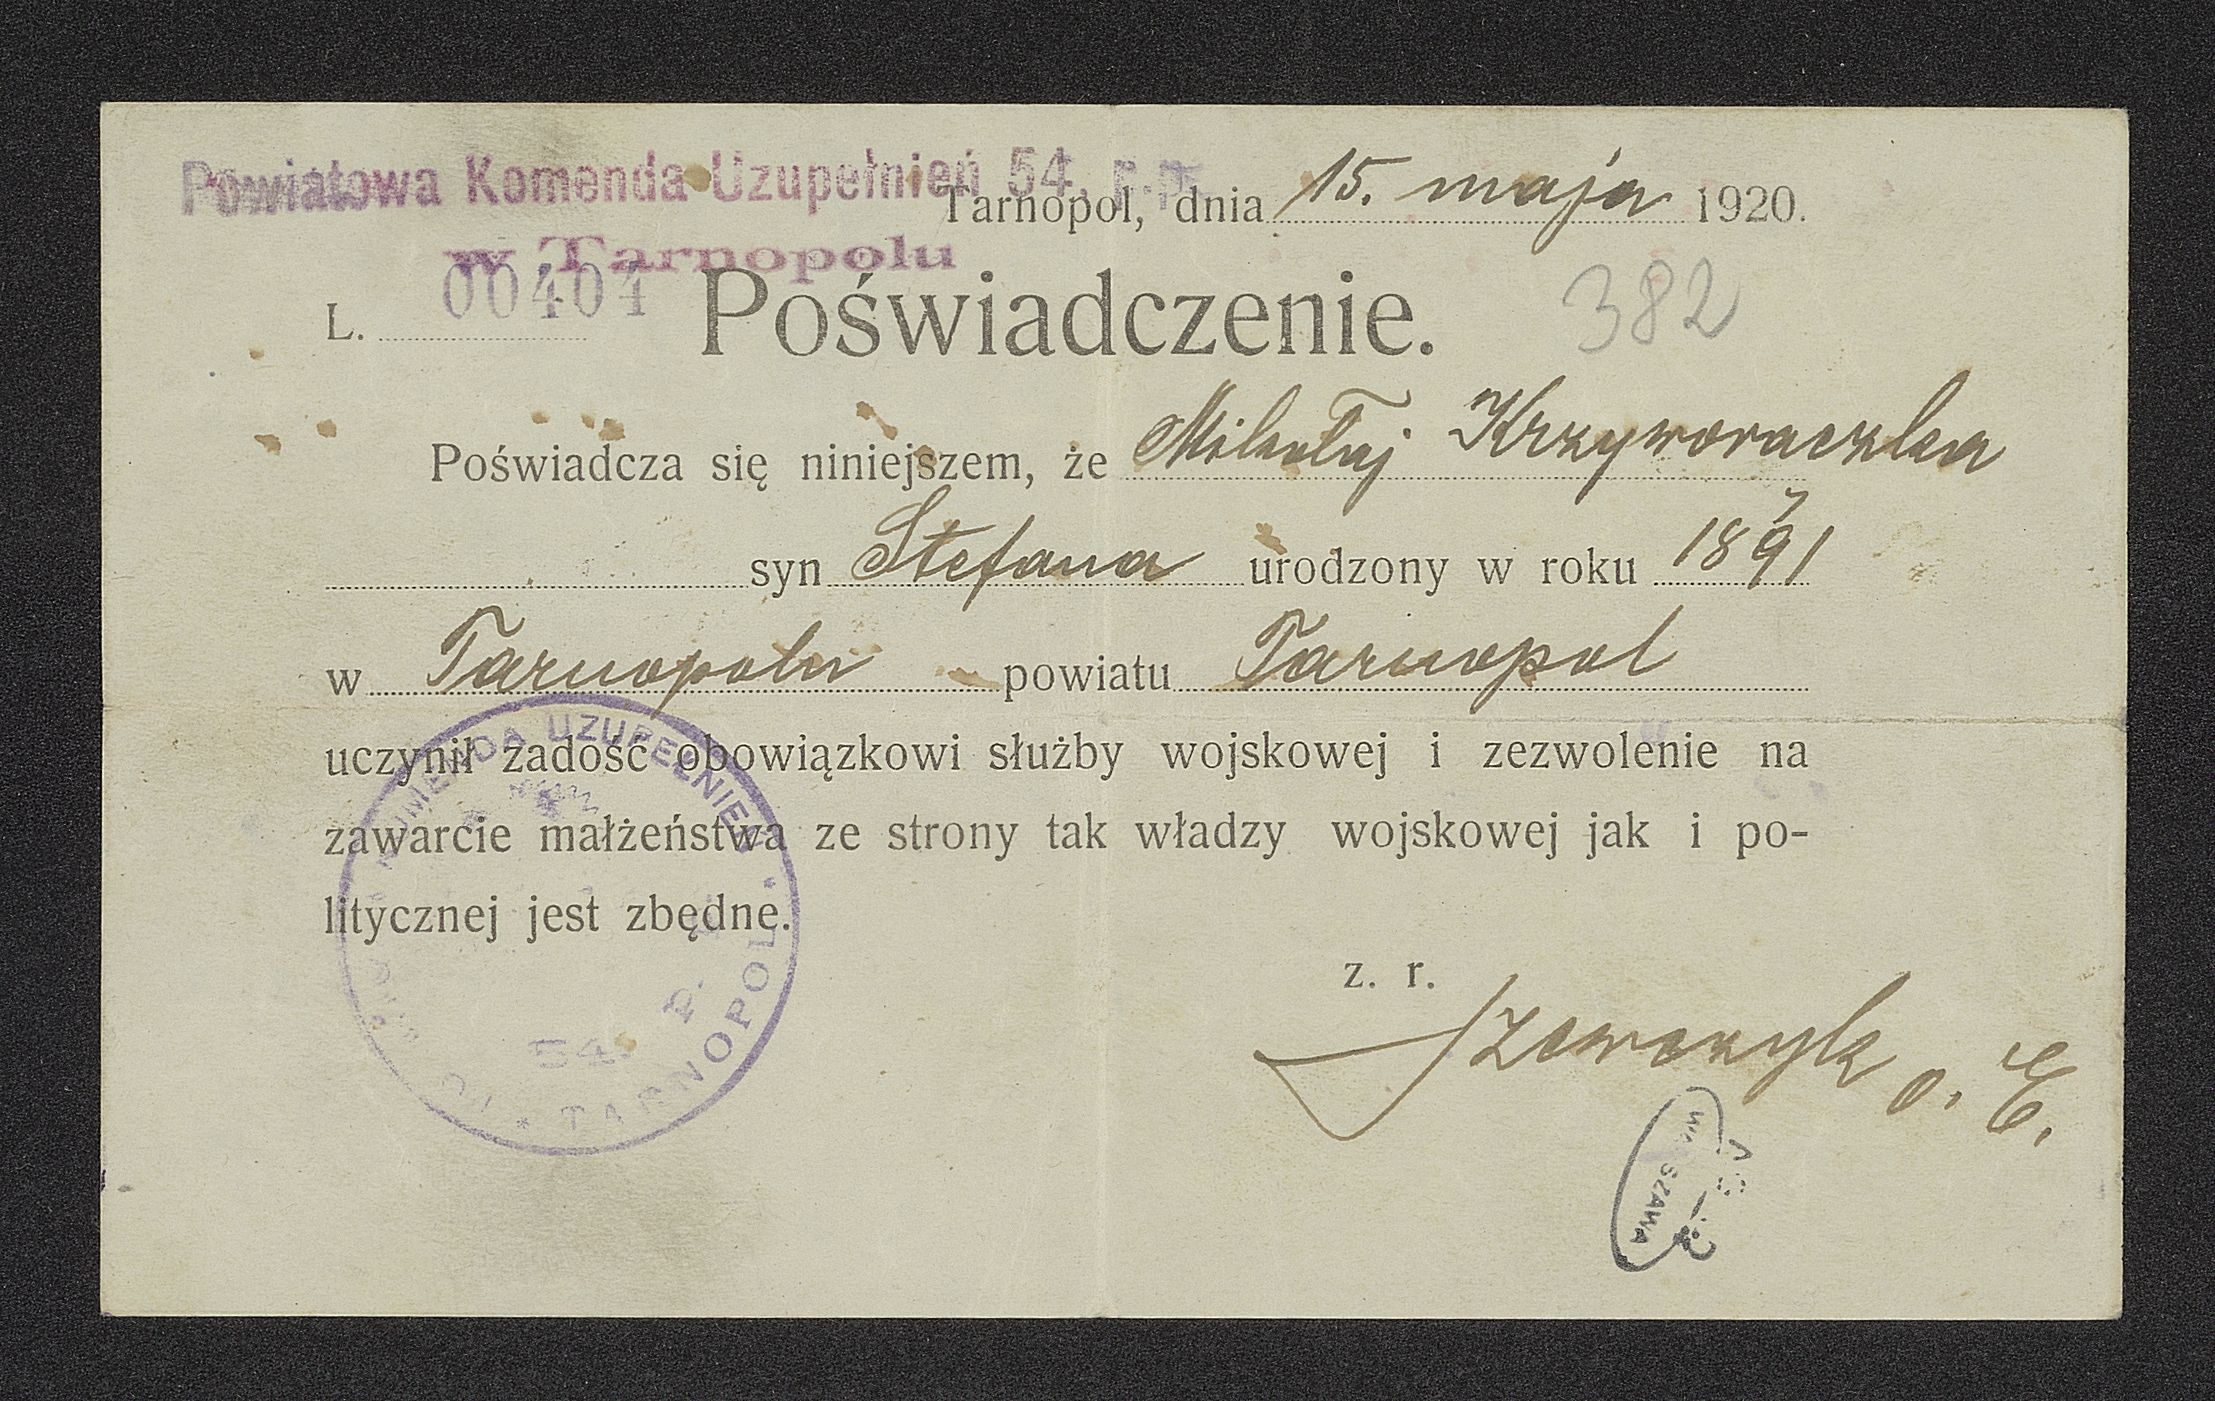 Powiatowa Komenda Uzupełnień 54. p.p.
w Tarnopolu
Tarnopol, dnia 15. maja 1920.
L. 00404
Poświadczenie.
382
Poświadcza się niniejszem, że Mikołaj Krzyworączka
syn Stefana urodzony w roku 1891
7
w Tarnopolu powiatu Tarnopol
uczynił zadość obowiązkowi służby wojskowej i zezwolenie na
zawarcie małżeństwa ze strony tak władzy wojskowej jak i po-
litycznej jest zbędne.
z. r.
Szewczyk
KOMENDA UZUPEŁNIEŃ
54. p.
* TARNOPOL *
WARSZAWA